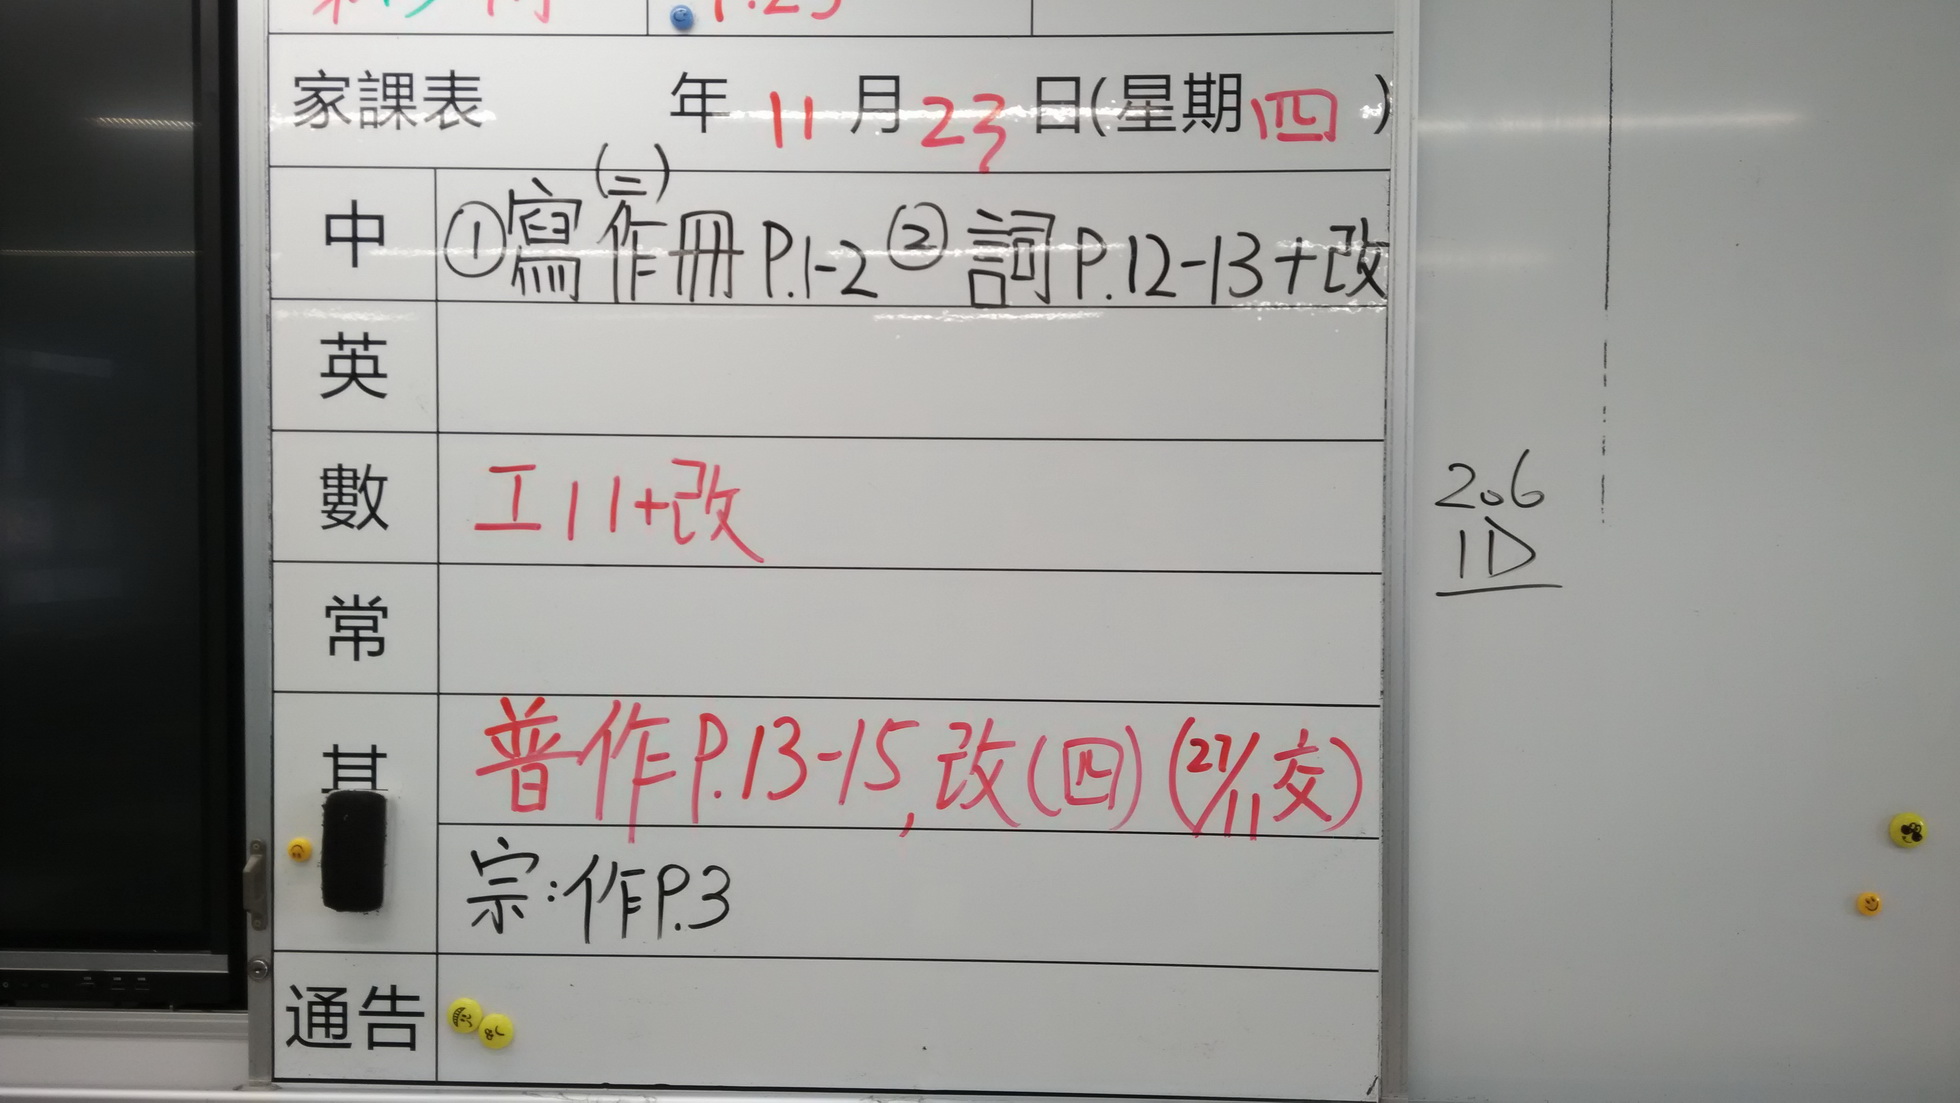 P.23
家課表 年 11 月 23 日(星期四)
中 ①寫作冊(二)P.1-2 ②詞P.12-13+改
英
數 工11+改
常
普作P.13-15,改(四)(27/11交)
宗:作P.3
通告
206
1D